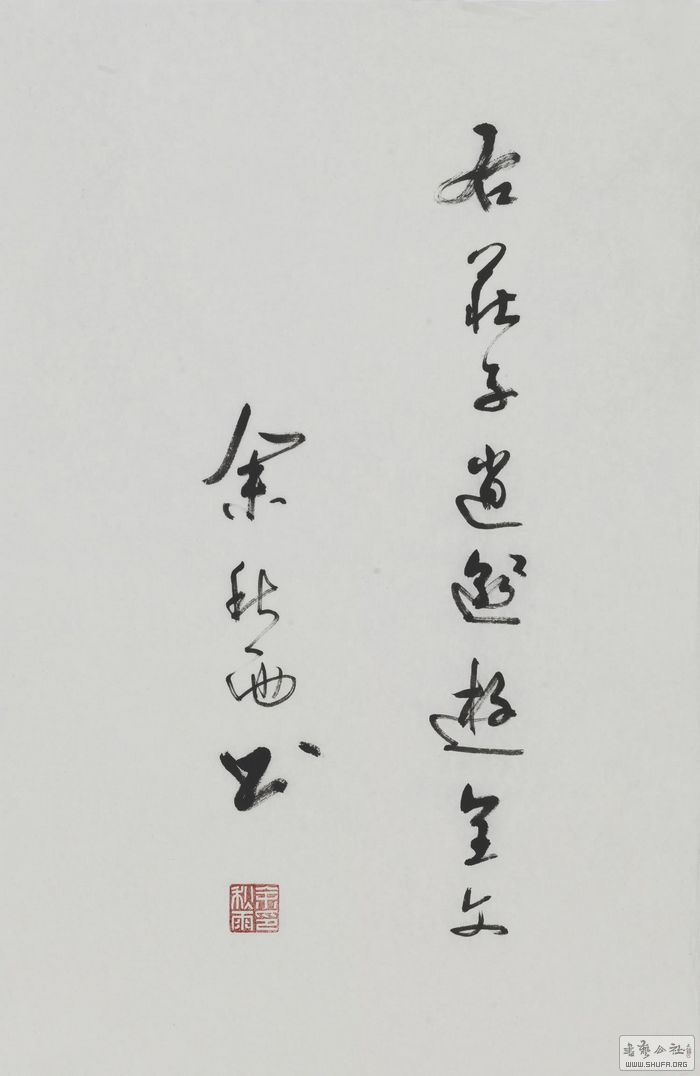 右莊子逍遙遊全文
余秋雨书
余印秋雨
書藝公社
WWW.SHUFA.ORG